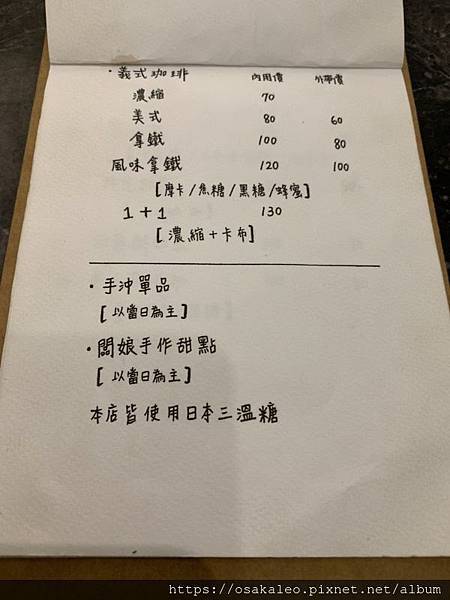 ・義式咖啡 內用價 外帶價
濃縮 70
美式 80 60
拿鐵 100 80
風味拿鐵 120 100
[摩卡/焦糖/黑糖/蜂蜜]
1+1 130
[濃縮+卡布]
・手沖單品
[以當日為主]
・闆娘手作甜點
[以當日為主]
本店皆使用日本三溫糖
https://osakaleo.pixnet.net/album